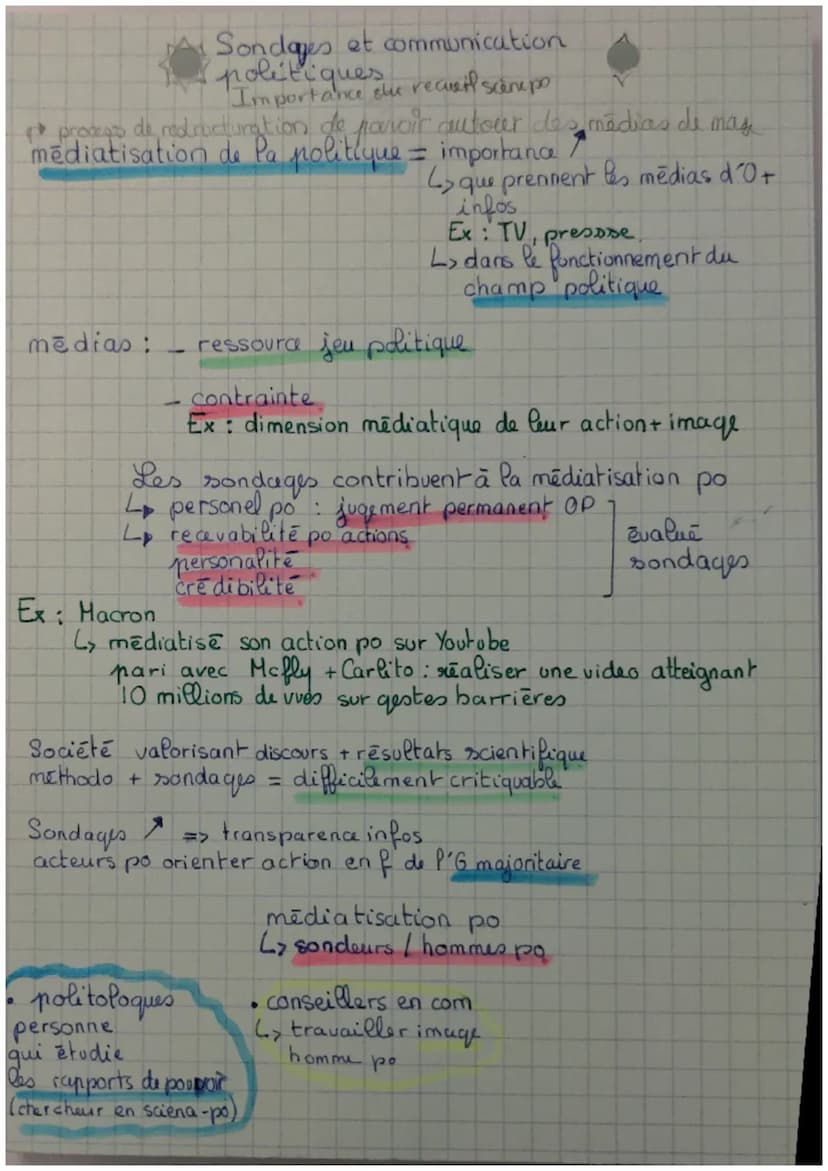 Sondages et communication
politiques
Importance du recueil scien po
médiatisation de la politique = importance ↗
↳ que prennent les médias d'O +
infos
Ex : TV, presse
↳ dans le fonctionnement du
champ politique
médias : - ressource jeu politique
- contrainte
Ex : dimension médiatique de leur action + image
Les sondages contribuent à la médiatisation po
↳ personel po : jugement permanent OP
↳ recevabilité po actions
personalité
crédibilité
évalué
sondages
Ex : Macron
↳ médiatisé son action po sur Youtube
pari avec Mcfly + Carlito : réaliser une video atteignant
10 millions de vues sur gestes barrières
Société valorisant discours + résultats scientifique
méthodo + sondages = difficilement critiquable
Sondages ↗ => transparence infos
acteurs po orienter action en f de l'G majoritaire
médiatisation po
↳ sondeurs / hommes po
• politologues
personne
qui étudie
les rapports de pouvoir
(chercheur en science-po)
• conseillers en com
↳ travailler image
homme po